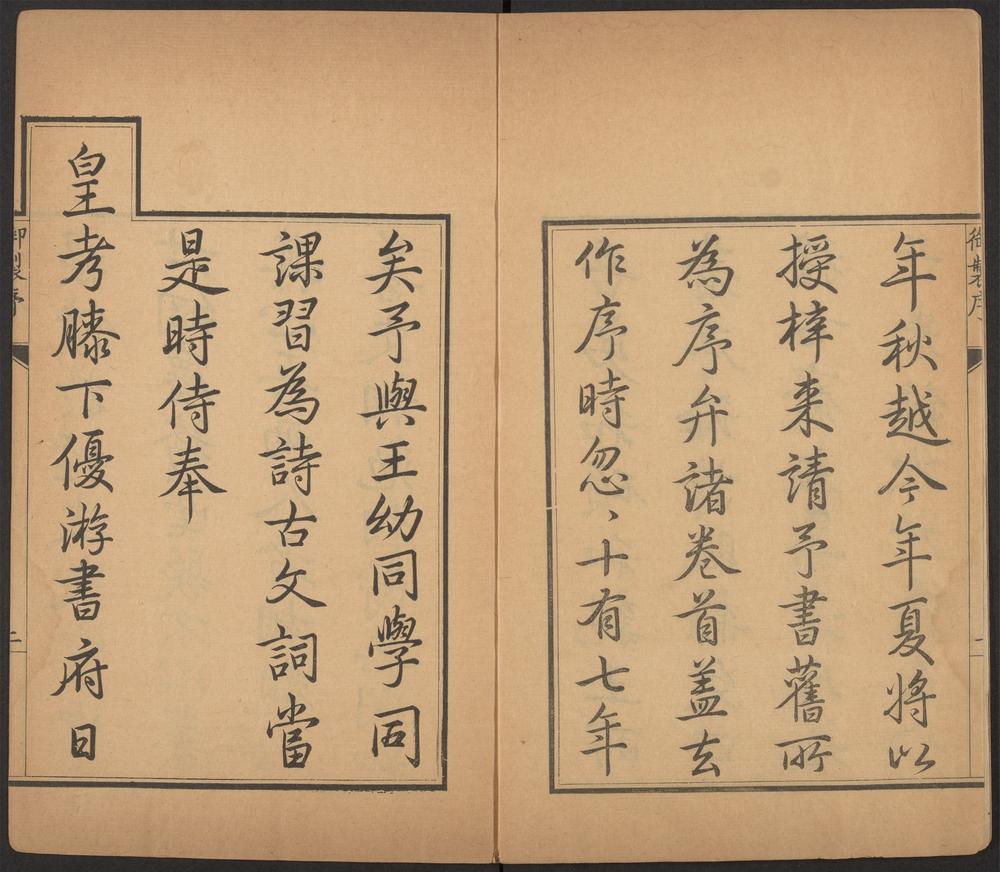 年秋越今年夏將以
授梓来請予書舊所
為序弁諸卷首盖去
作序時忽〻十有七年
矣予與王幼同學同
課習為詩古文詞當
是時侍奉
皇考膝下優游書府日
御製序
一
御製序
二